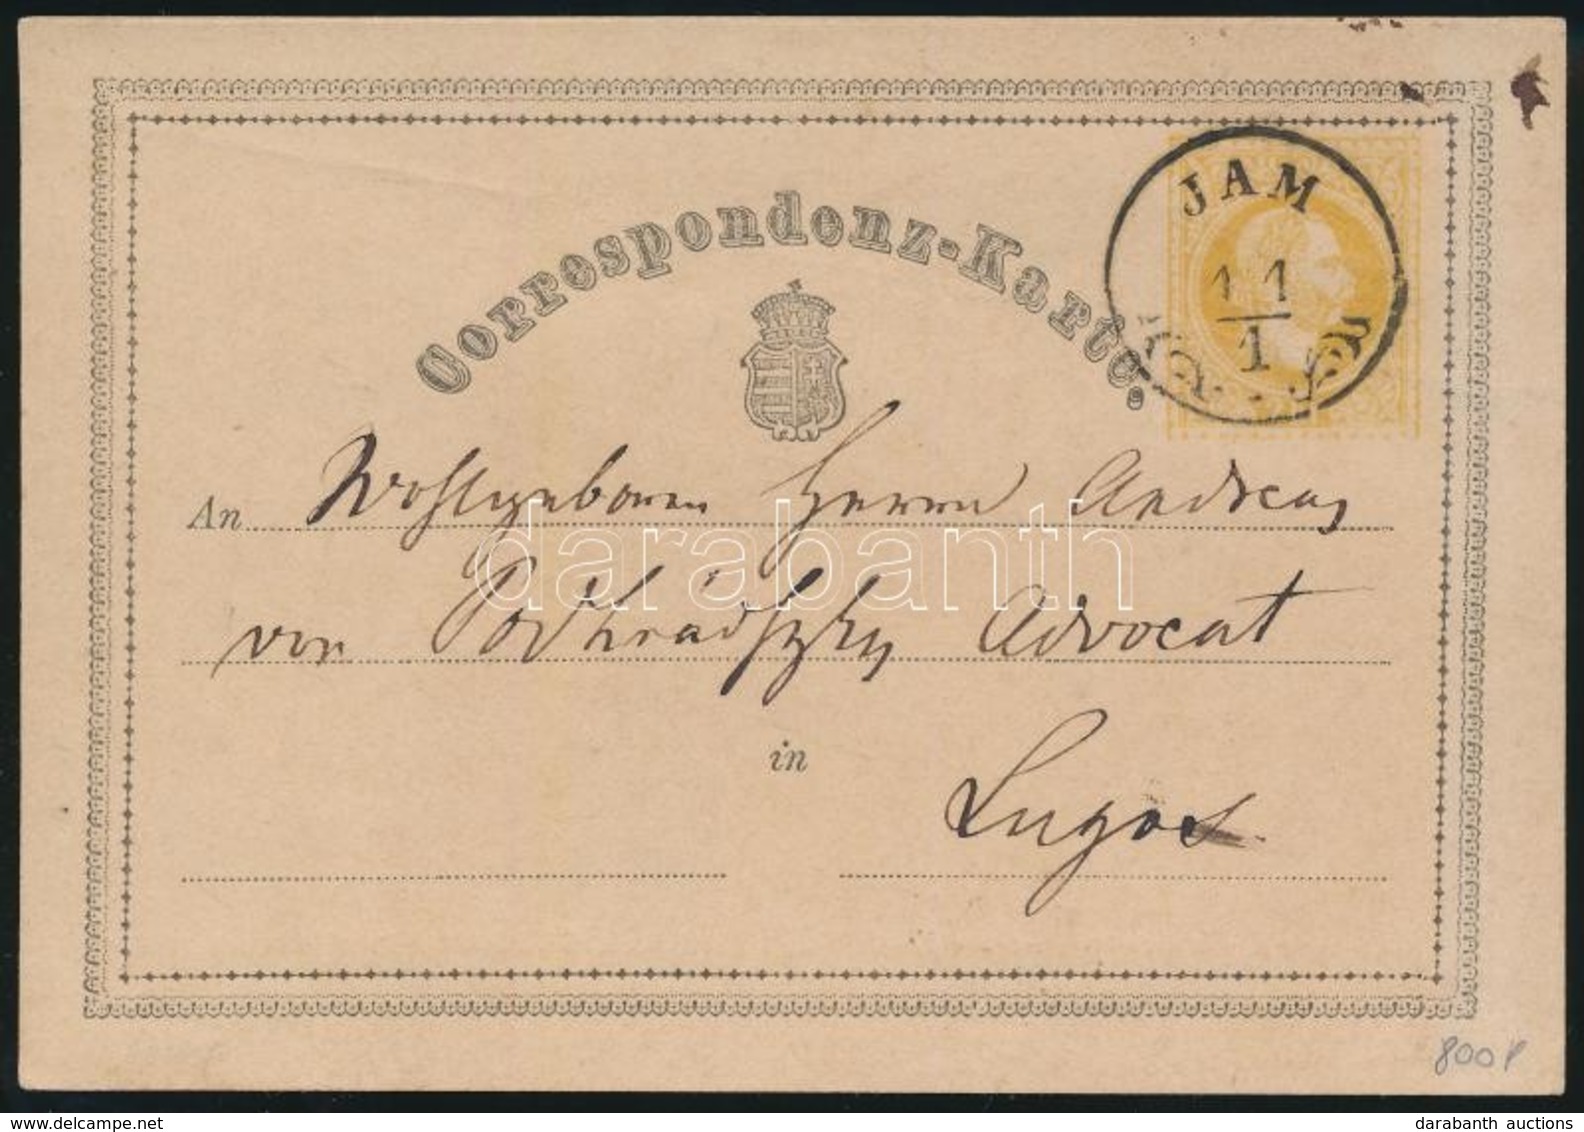 Correspondenz-Karte.
JAM
11
1
An Wohlgeboren Herrn Andreas
von Podhrádszky Advocat
in
Lugos
darabanth
800 P
delcampe.net
darabanth auctions